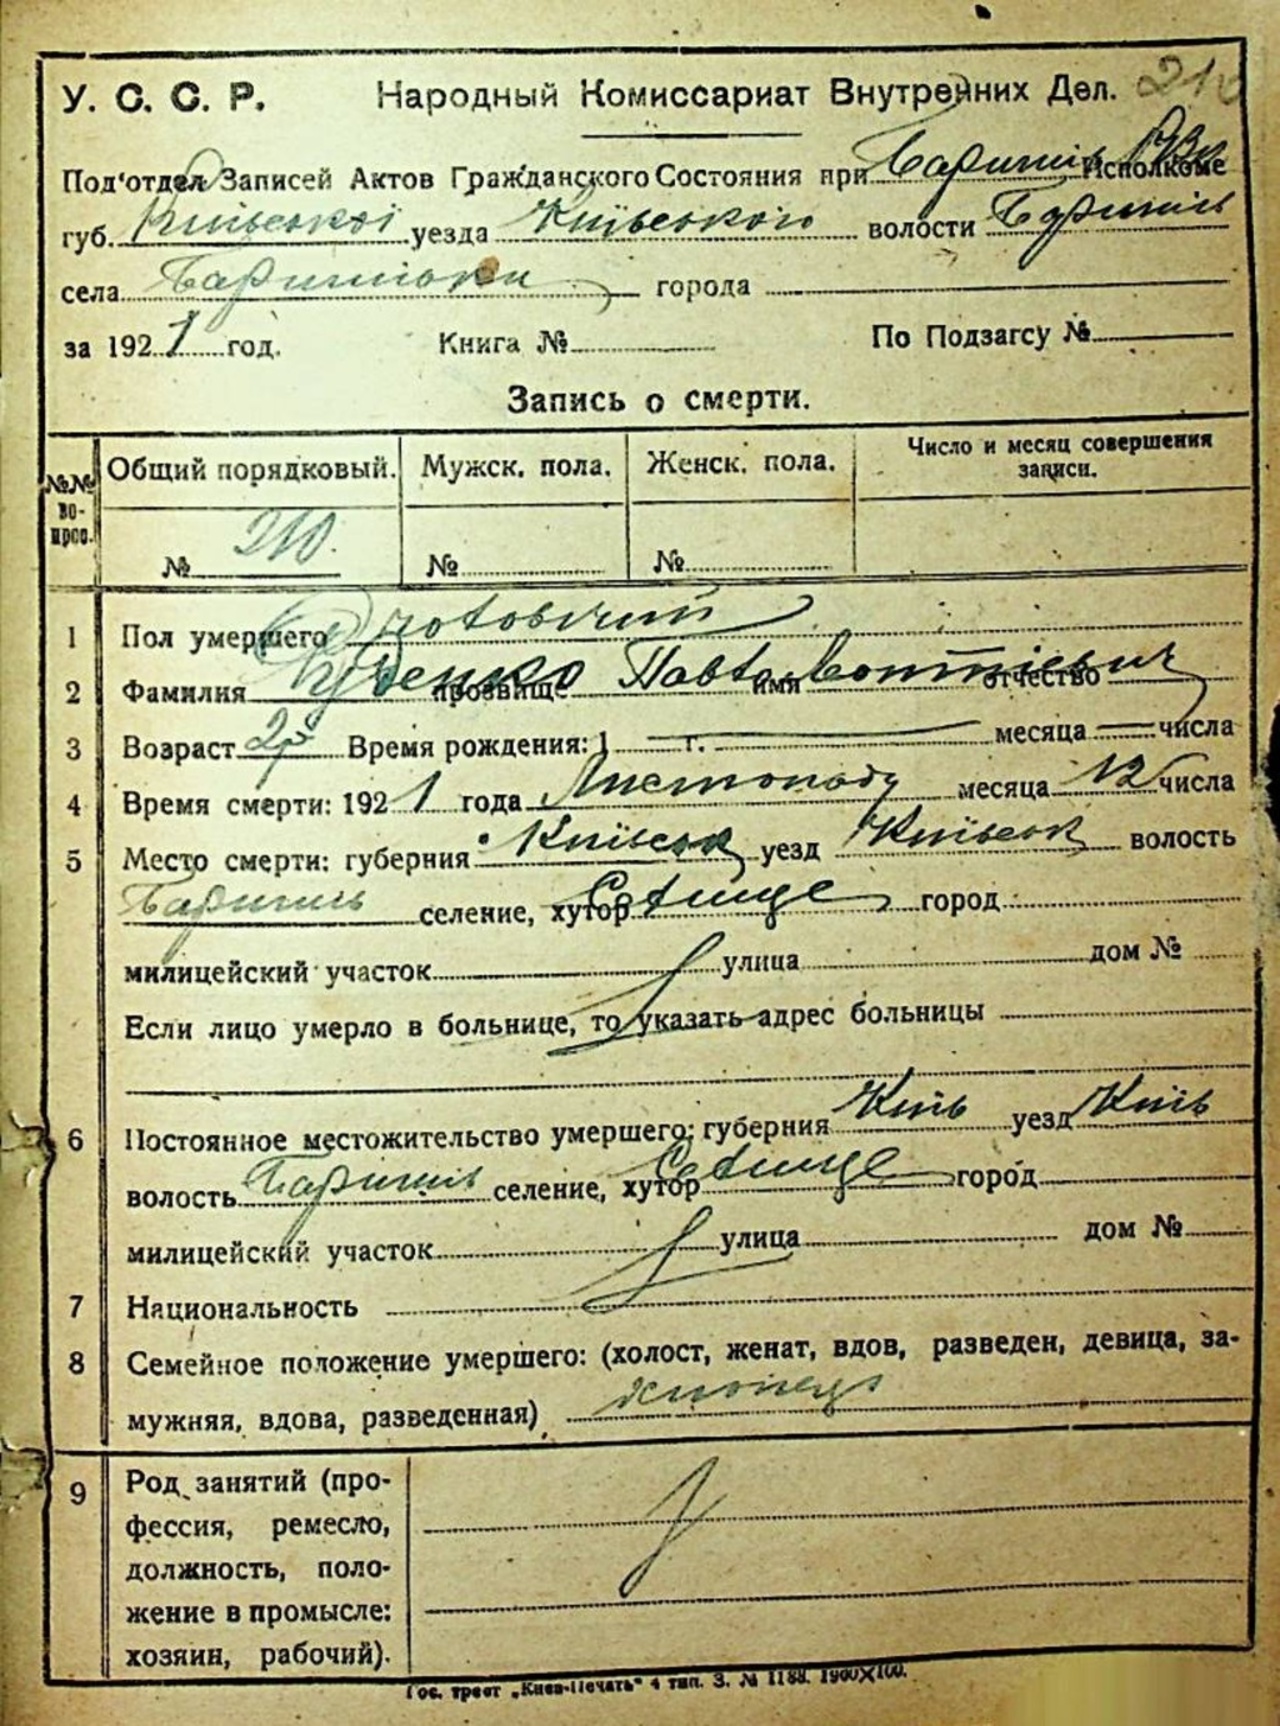 210
У. С. С. Р. Народный Комиссариат Внутренних Дел.
Под'отдел Записей Актов Гражданского Состояния при Баришів Исполкоме
губ. Київської уезда Київського волости Баришів
села Баришівки города
за 1921 год. Книга № По Подзагсу №
Запись о смерти.
№№ вопрос. Общий порядковый. Мужск. пола. Женск. пола. Число и месяц совершения записи.
№ 210. № №
1 Пол умершего чоловічий
2 Фамилия Руденко прозвище Павло имя отчество
3 Возраст 2р Время рождения: 1 — г. месяца — числа
4 Время смерти: 1921 года Листопаду месяца 12 числа
5 Место смерти: губерния Київськ уезд Київськ волость
Баришів селение, хутор Селище город
милицейский участок улица дом №
Если лицо умерло в больнице, то указать адрес больницы
6 Постоянное местожительство умершего: губерния Київ уезд Київ
волость Баришів селение, хутор Селище город
милицейский участок улица дом №
7 Национальность
8 Семейное положение умершего: (холост, женат, вдов, разведен, девица, за-
мужняя, вдова, разведенная) хлопець
9 Род занятий (про-
фессия, ремесло,
должность, поло-
жение в промысле:
хозяин, рабочий).
Гос. трест „Киев-Печать" 4 тип. З. № 1188. 1900×100.